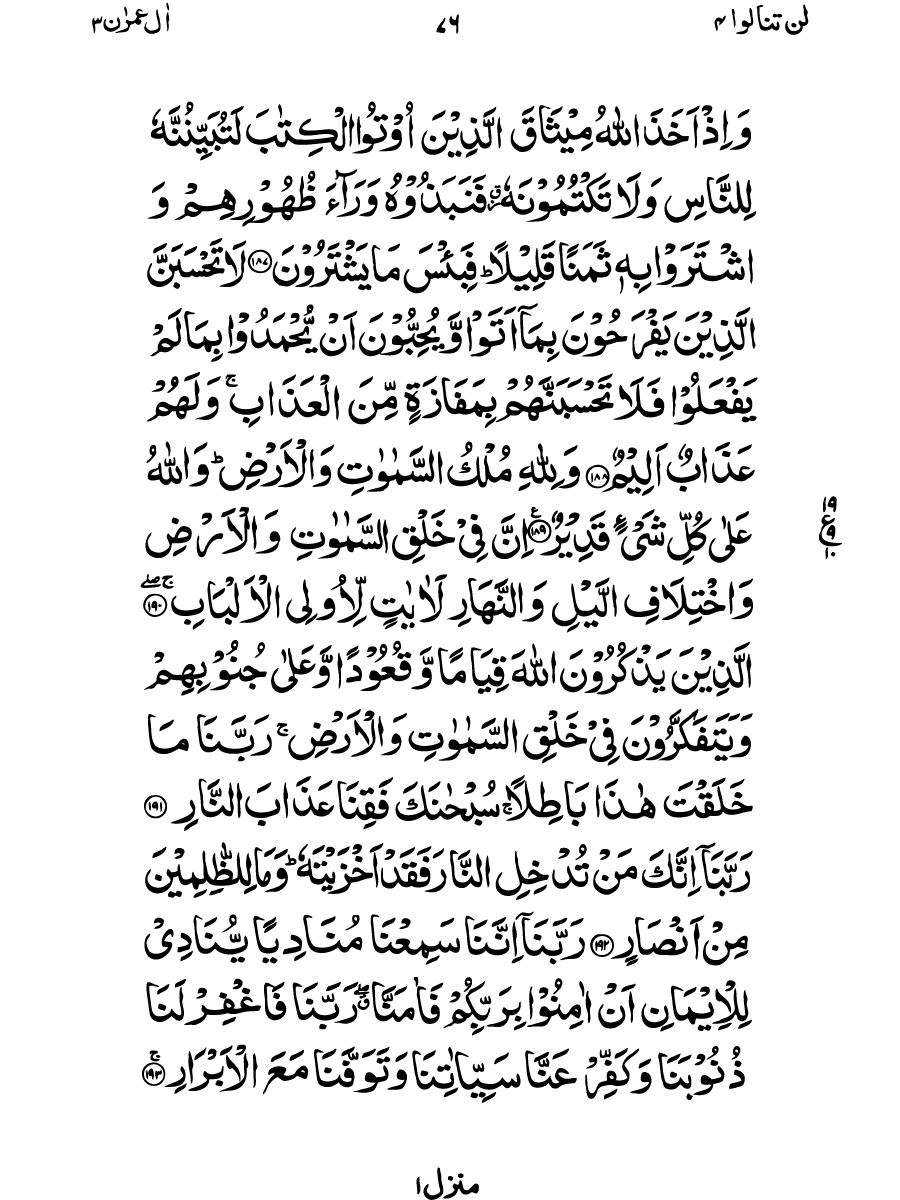 لن تنالوا ۴ ۷۶ اٰل عمرٰن ۳
وَ اِذْ اَخَذَ اللّٰهُ مِیْثَاقَ الَّذِیْنَ اُوْتُوا الْكِتٰبَ لَتُبَیِّنُنَّهٗ
لِلنَّاسِ وَ لَا تَكْتُمُوْنَهٗ٘ فَنَبَذُوْهُ وَرَآءَ ظُهُوْرِهِمْ وَ
اشْتَرَوْا بِهٖ ثَمَنًا قَلِیْلًا ؕ فَبِئْسَ مَا یَشْتَرُوْنَ ﴿۱۸۷﴾ لَا تَحْسَبَنَّ
الَّذِیْنَ یَفْرَحُوْنَ بِمَاۤ اَتَوْا وَّ یُحِبُّوْنَ اَنْ یُّحْمَدُوْا بِمَا لَمْ
یَفْعَلُوْا فَلَا تَحْسَبَنَّهُمْ بِمَفَازَةٍ مِّنَ الْعَذَابِ ۚ وَ لَهُمْ
عَذَابٌ اَلِیْمٌ ﴿۱۸۸﴾ وَ لِلّٰهِ مُلْكُ السَّمٰوٰتِ وَ الْاَرْضِ ؕ وَ اللّٰهُ
عَلٰی كُلِّ شَیْءٍ قَدِیْرٌ ﴿۱۸۹﴾ ع اِنَّ فِیْ خَلْقِ السَّمٰوٰتِ وَ الْاَرْضِ
۱۹ ع ۹ ۱۰
وَ اخْتِلَافِ الَّیْلِ وَ النَّهَارِ لَاٰیٰتٍ لِّاُولِی الْاَلْبَابِ ﴿۱۹۰﴾ ۚۖ
الَّذِیْنَ یَذْكُرُوْنَ اللّٰهَ قِیَامًا وَّ قُعُوْدًا وَّ عَلٰی جُنُوْبِهِمْ
وَ یَتَفَكَّرُوْنَ فِیْ خَلْقِ السَّمٰوٰتِ وَ الْاَرْضِ ۚ رَبَّنَا مَا
خَلَقْتَ هٰذَا بَاطِلًا ۚ سُبْحٰنَكَ فَقِنَا عَذَابَ النَّارِ ﴿۱۹۱﴾
رَبَّنَاۤ اِنَّكَ مَنْ تُدْخِلِ النَّارَ فَقَدْ اَخْزَیْتَهٗ ؕ وَ مَا لِلظّٰلِمِیْنَ
مِنْ اَنْصَارٍ ﴿۱۹۲﴾ رَبَّنَاۤ اِنَّنَا سَمِعْنَا مُنَادِیًا یُّنَادِیْ
لِلْاِیْمَانِ اَنْ اٰمِنُوْا بِرَبِّكُمْ فَاٰمَنَّا ۖۗ رَبَّنَا فَاغْفِرْ لَنَا
ذُنُوْبَنَا وَ كَفِّرْ عَنَّا سَیِّاٰتِنَا وَ تَوَفَّنَا مَعَ الْاَبْرَارِ ﴿۱۹۳﴾ ۚ
منزل ۱